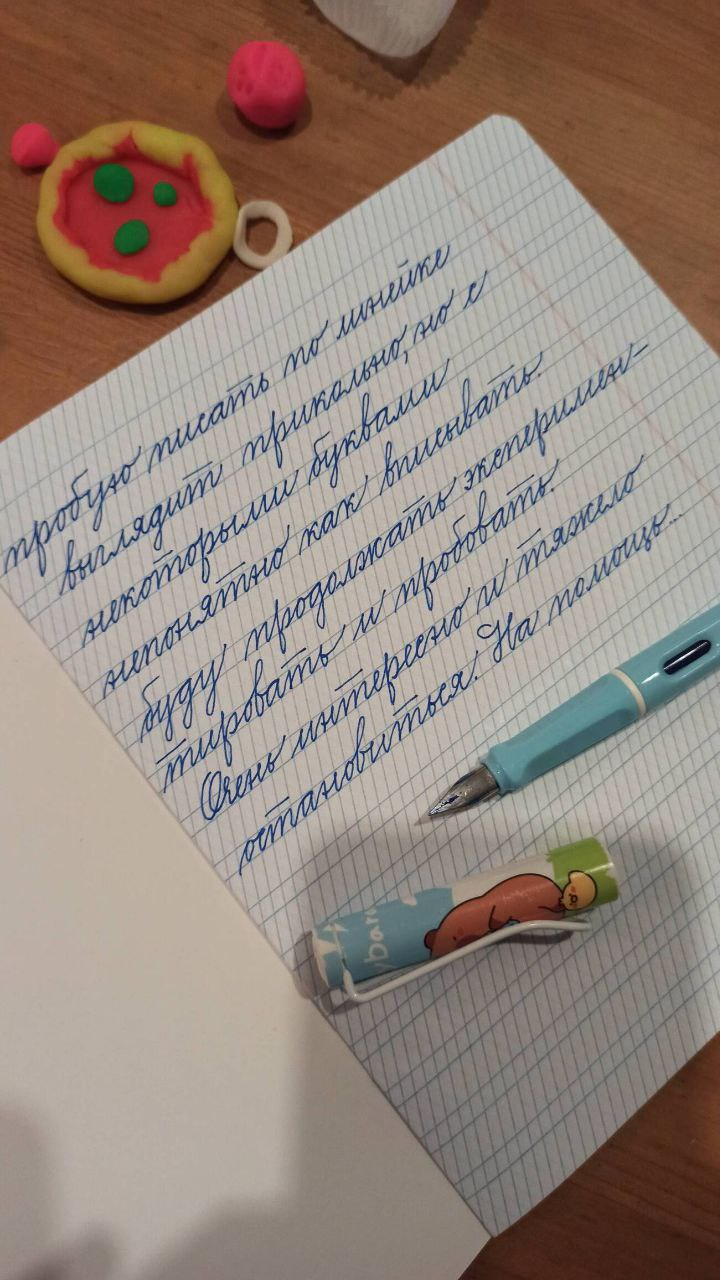 пробую писать по линейке
выглядит прикольно, но с
некоторыми буквами
непонятно как вписывать.
буду продолжать эксперимен-
тировать и пробовать.
Очень интересно и тяжело
остановиться. На помощь...
ybara